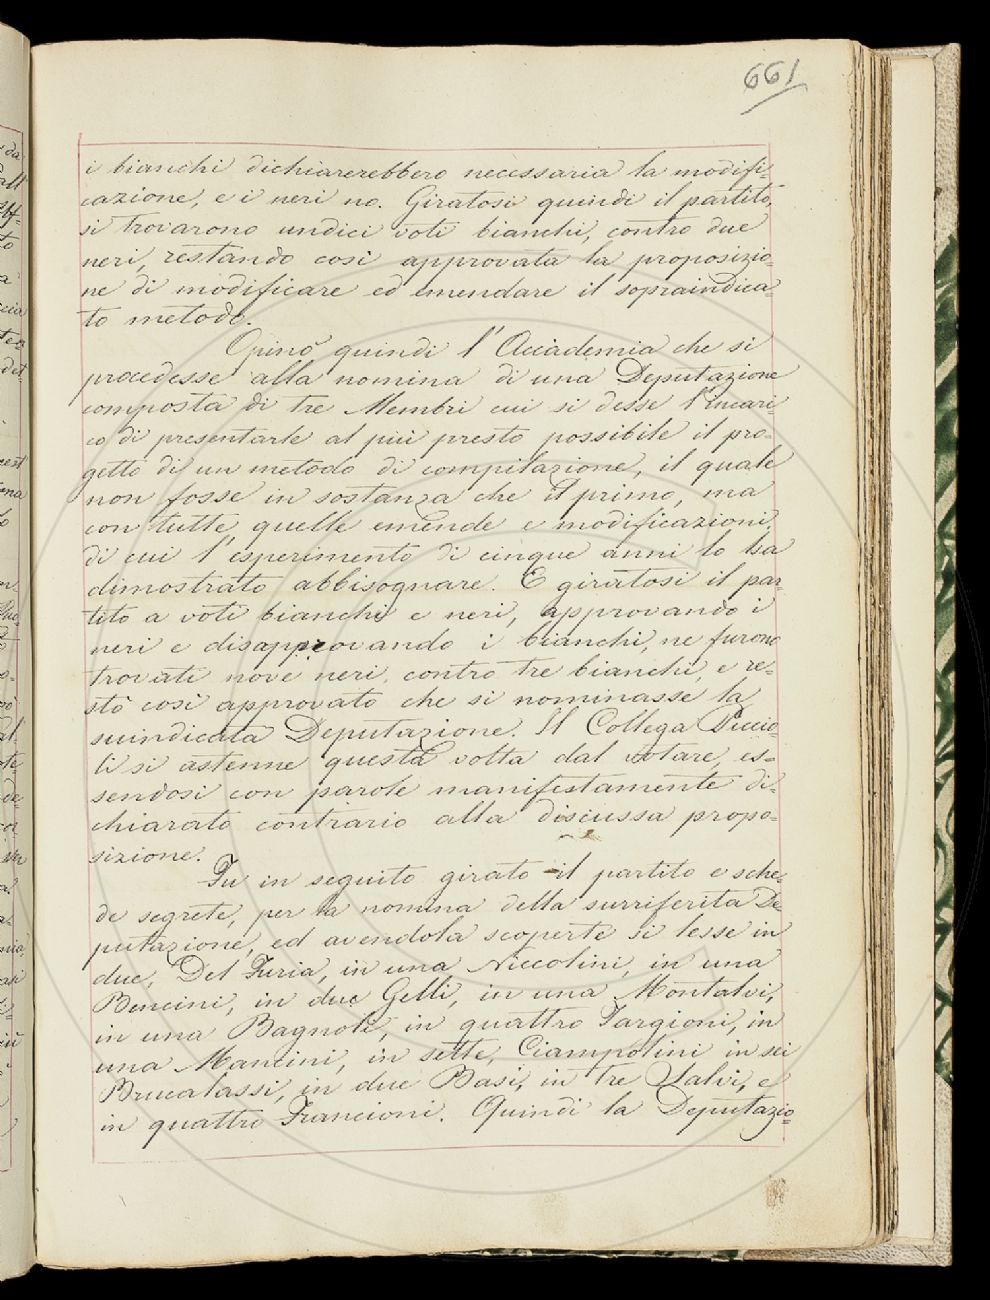 661
i bianchi dichiarerebbero necessaria la modifi-
cazione, e i neri no. Giratosi quindi il partito,
si trovarono undici voti bianchi, contro due
neri, restando così approvata la proposizio=
ne di modificare ed emendare il sopraindica=
to metodo.
Opinò quindi l'Accademia che si
procedesse alla nomina di una Deputazione
composta di tre Membri cui si desse l'incari=
co di presentarle al più presto possibile il pro=
getto di un metodo di compilazione, il quale
non fosse in sostanza che il primo, ma
con tutte quelle emende e modificazioni,
di cui l'esperimento di cinque anni lo ha
dimostrato abbisognare. E giratosi il par=
tito a voti bianchi e neri, approvando i
neri e disapprovando i bianchi, ne furono
trovati nove neri, contro tre bianchi, e re=
stò così approvato che si nominasse la
suindicata Deputazione. Il Collega Puccio=
li si astenne questa volta dal votare, es=
sendosi con parole manifestamente di=
chiarato contrario alla discussa propo=
sizione.
Fu in seguito girato il partito e sche=
de segrete, per la nomina della surriferita De
putazione, ed avendola scoperte si lesse in
due, Del Furia, in una Niccolini, in una
Bencini, in due Gelli, in una Montalvi,
in una Bagnoli, in quattro Targioni, in
una Mancini, in sette, Ciampolini in sei
Brucalassi, in due Basi, in tre Salvi, e
in quattro Francioni. Quindi la Deputazio=